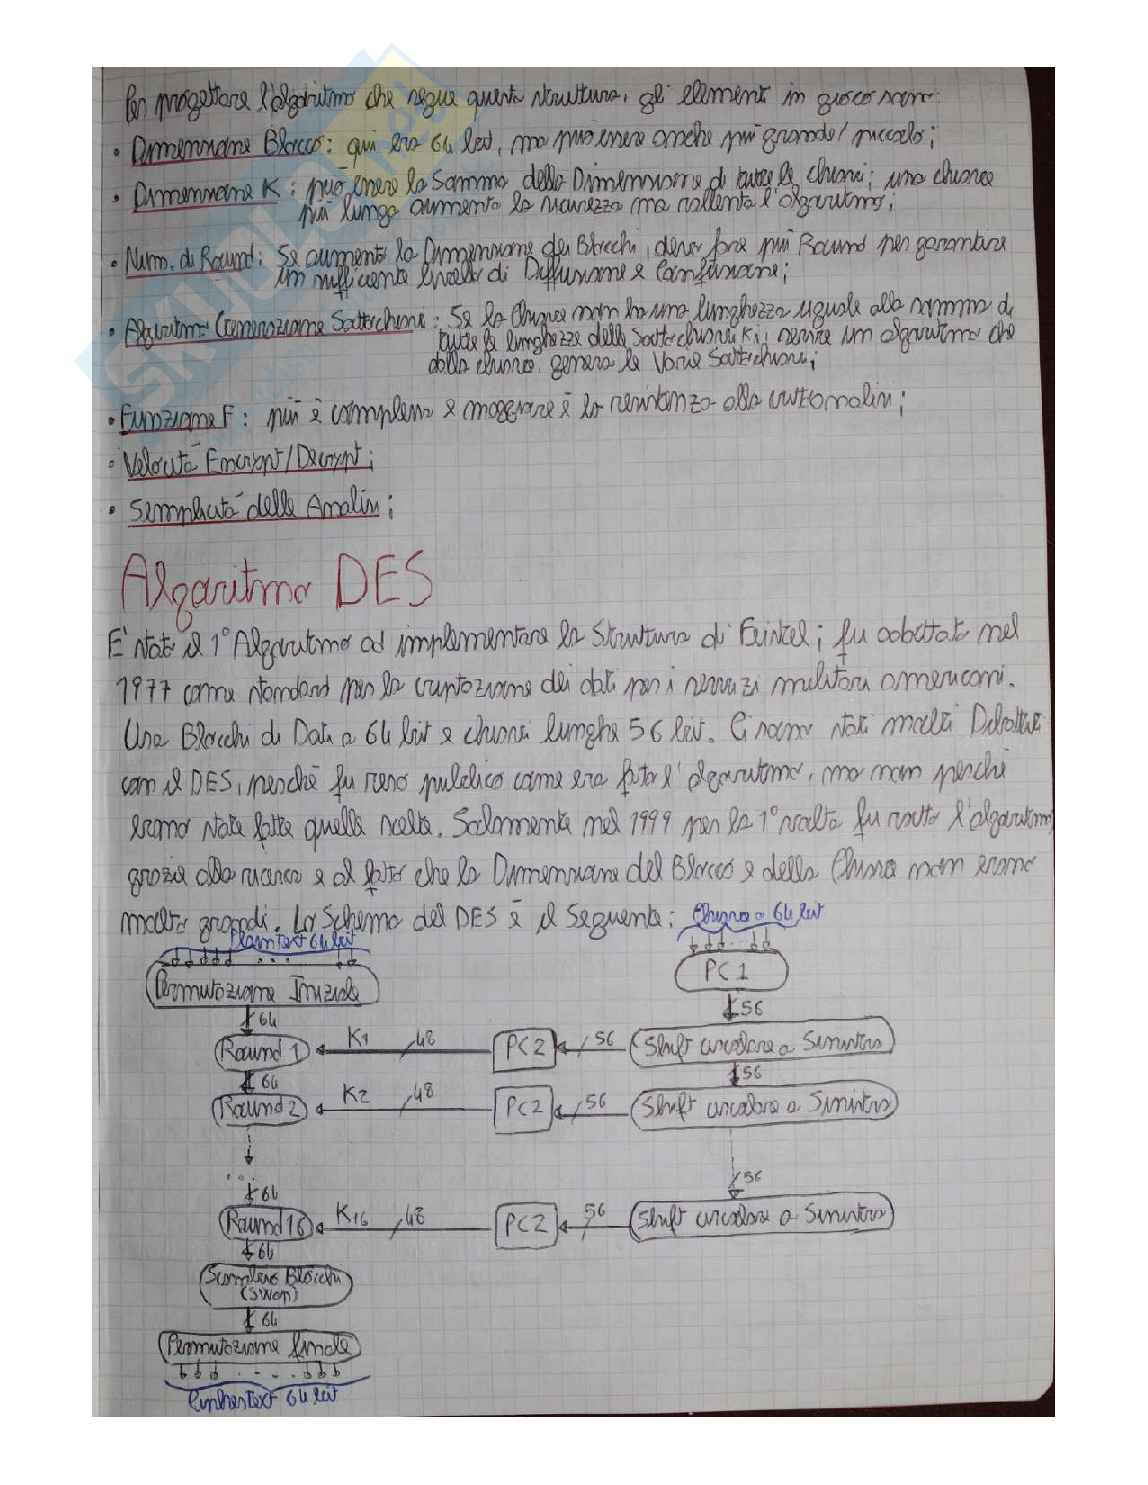 Per progettare l'algoritmo che segue questa struttura, gli elementi in gioco sono:
• Dimensione Blocco: qui era 64 bit, ma può essere anche più grande/piccolo;
• Dimensione K: può essere la somma della Dimensione di tutte le chiavi; una chiave
più lunga aumenta la sicurezza ma rallenta l'algoritmo;
• Num. di Round: Se aumento la Dimensione dei Blocchi, devo fare più Round per garantire
un sufficiente livello di Diffusione e Confusione;
• Algoritmo Generazione Sottochiave: Se la Chiave non ha una lunghezza uguale alla somma di
tutte le lunghezze delle Sottochiavi Ki, serve un algoritmo che
dalla chiave genera le Varie Sottochiavi;
• Funzione F: più è complessa e maggiore è la resistenza alla crittoanalisi;
• Velocità Encrypt/Decrypt;
• Semplicità delle Analisi;
Algoritmo DES
E' stato il 1° Algoritmo ad implementare la Struttura di Feistel; fu adottato nel
1977 come standard per la criptazione dei dati per i servizi militari americani.
Usa Blocchi di Dati a 64 bit e chiavi lunghe 56 bit. Ci sono stati molti Dibattiti
con il DES, perché fu reso pubblico come era fatto l'algoritmo, ma non perché
erano state fatte quelle scelte. Solamente nel 1999 per la 1° volta fu rotto l'algoritmo
grazie alla ricerca e al fatto che la Dimensione del Blocco e della Chiave non erano
molto grandi. Lo Schema del DES è il Seguente:
Chiave a 64 bit
Plaintext 64 bit
Permutazione Iniziale
PC1
64
56
Round 1
K1
48
PC2
56
Shift circolare a Sinistra
64
56
Round 2
K2
48
PC2
56
Shift circolare a Sinistra
...
56
64
Round 16
K16
48
PC2
56
Shift circolare a Sinistra
64
Scambio Blocchi
(swap)
64
Permutazione finale
Ciphertext 64 bit